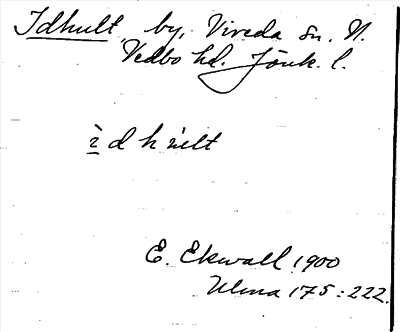 Idhult, by, Vireda sn. N.
Vedbo hd. Jönk. l.
ìdhult
E. Ekwall 1900
Ulma 175:222.